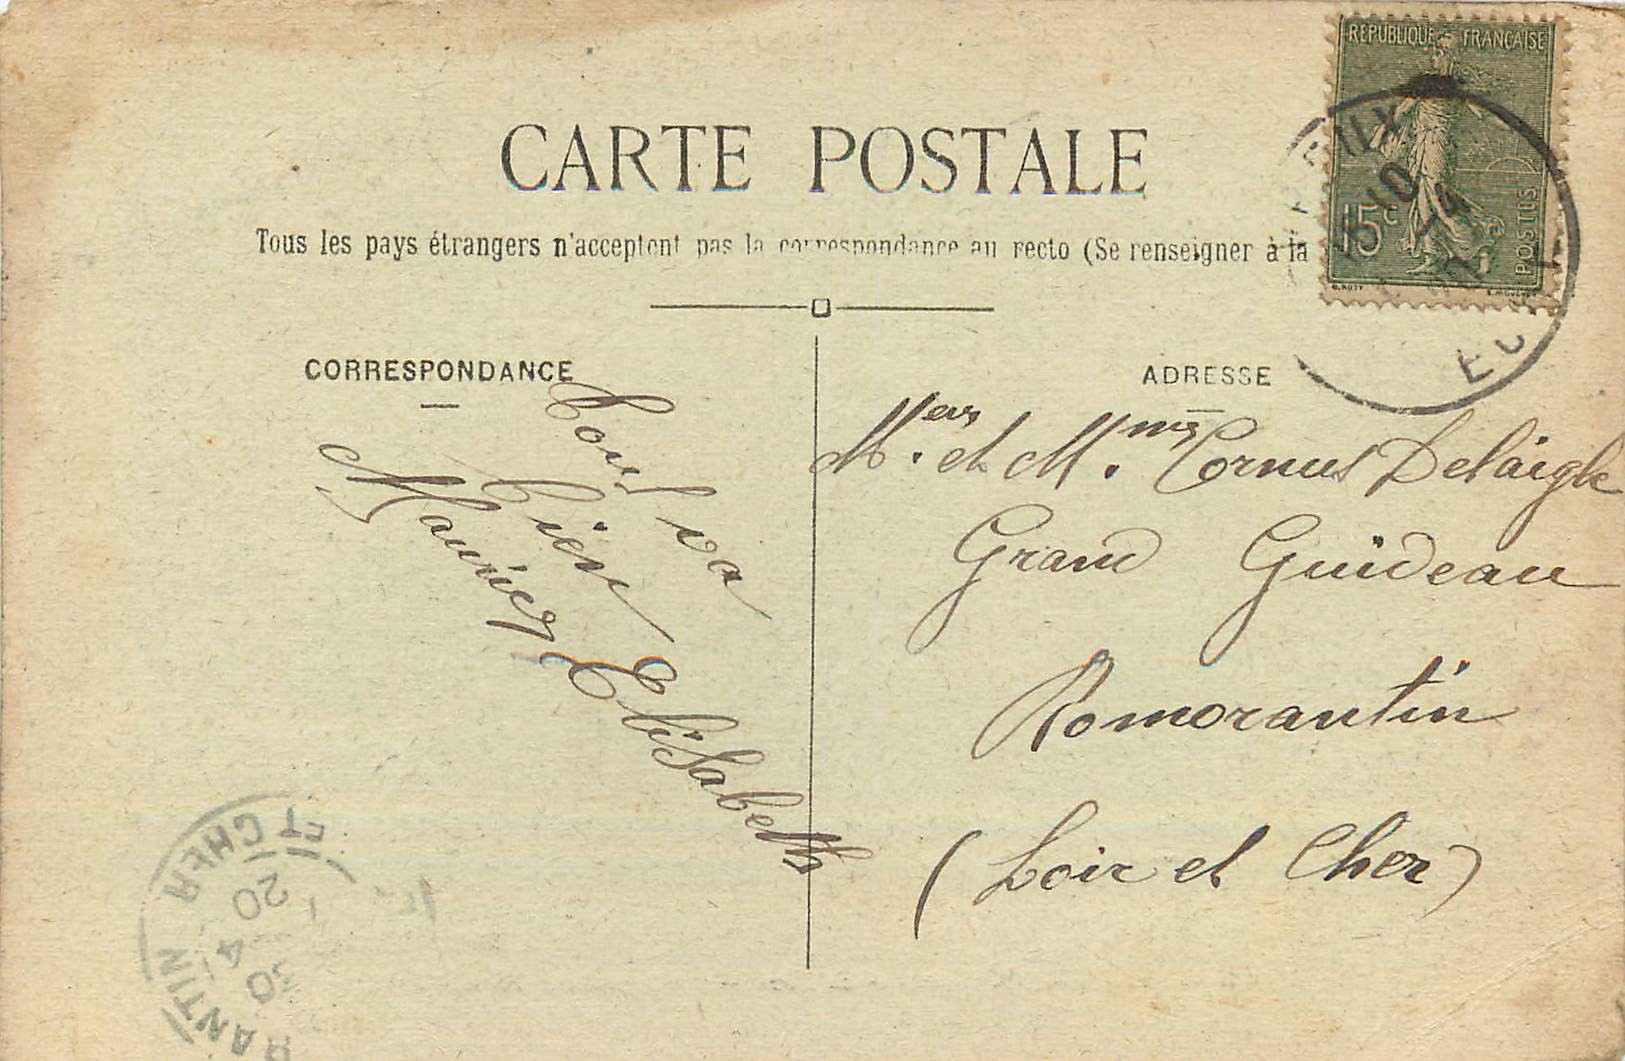 REPUBLIQUE FRANÇAISE
15c
POSTES
O. ROTY
10
CARTE POSTALE
Tous les pays étrangers n'acceptent pas la correspondance au recto (Se renseigner à la
CORRESPONDANCE
Tout va
bien
Maurice
Elisabeth
ADRESSE
Mers. et M.mes Cornus Delaigle
Grand Guideau
Romorantin
(Loir et Cher)
ET CHER
20
4
30
RANTIN